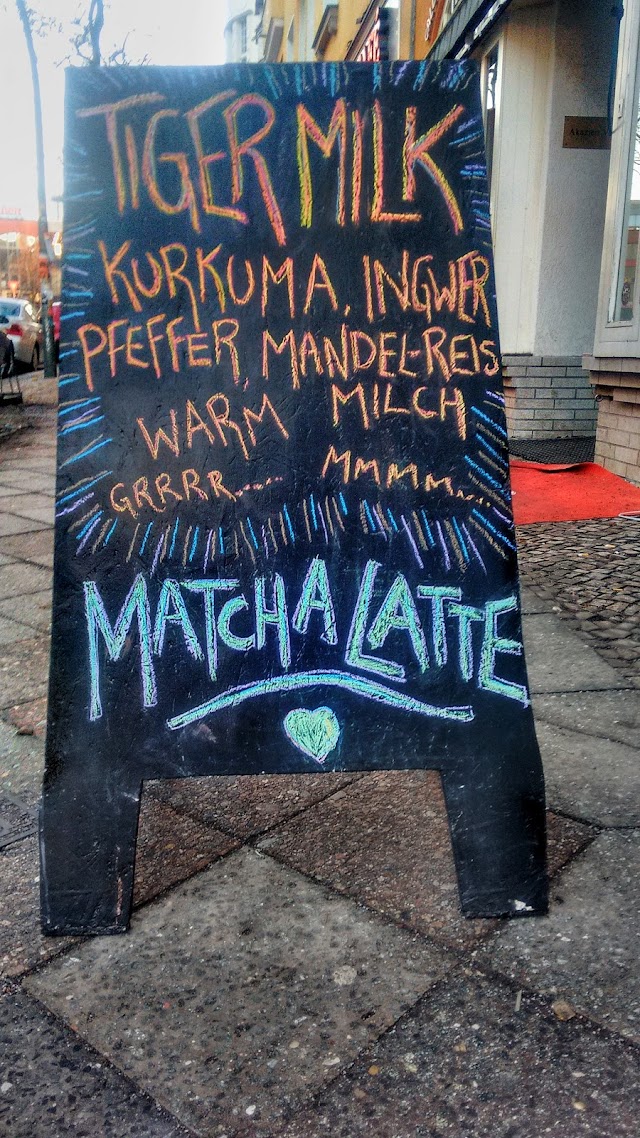 TIGER MILK
KURKUMA, INGWER
PFEFFER, MANDEL-REIS
WARM MILCH
GRRRR..... MMMM....
MATCHA LATTE